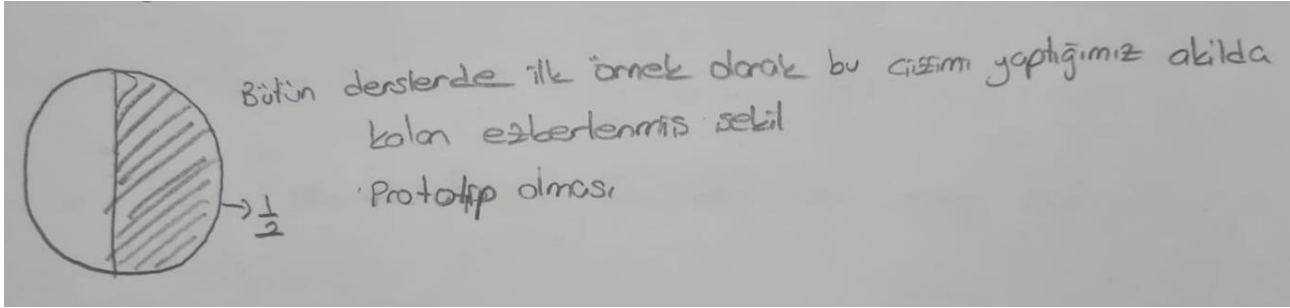 Bütün derslerde ilk örnek olarak bu çizimi yaptığımız akilda
kalan ezberlenmis sekil
Prototip olması
→ 1/2